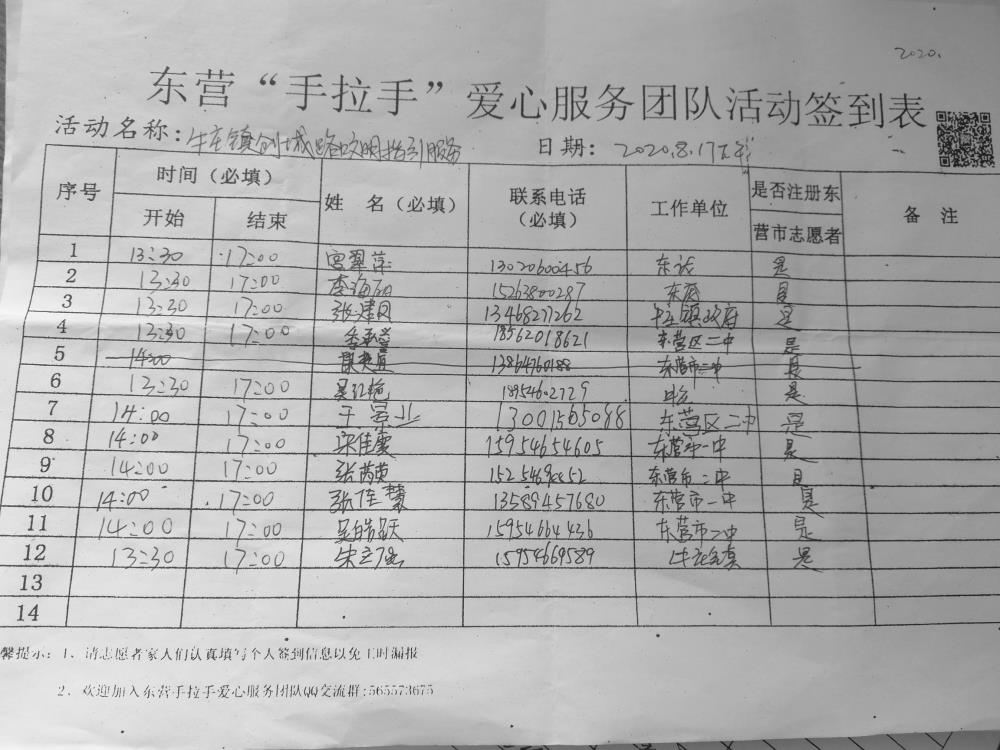 2020.
东营“手拉手”爱心服务团队活动签到表
活动名称：牛庄镇创城路口文明指引服务 日期： 2020.8.17下午
序号 时间（必填） 姓 名（必填） 联系电话（必填） 工作单位 是否注册东营市志愿者 备 注
开始 结束
1 13:30 17:00 宫翠萍 13020600456 是
2 13:30 17:00 李海 15263800287 是
3 13:30 17:00 张建 13468277262 牛庄镇政府 是
4 13:30 17:00 18562018621 东营区二中 是
5 14:00 13864760188 东营市二中 是
6 13:30 17:00 吴红艳 18954602729 是
7 14:00 17:00 13001565098 东营区二中 是
8 14:00 17:00 宋佳雯 15954654605 东营市一中 是
9 14:00 17:00 张茜茜 东营市二中 是
10 14:00 17:00 张佳慧 13589457680 东营市一中 是
11 14:00 17:00 吴皓跃 15954664436 东营市二中 是
12 13:30 17:00 朱立强 15954669589 牛庄镇 是
13
14
馨提示：1、请志愿者家人们认真填写个人签到信息以免工时漏报
2、欢迎加入东营手拉手爱心服务团队QQ交流群:565573675